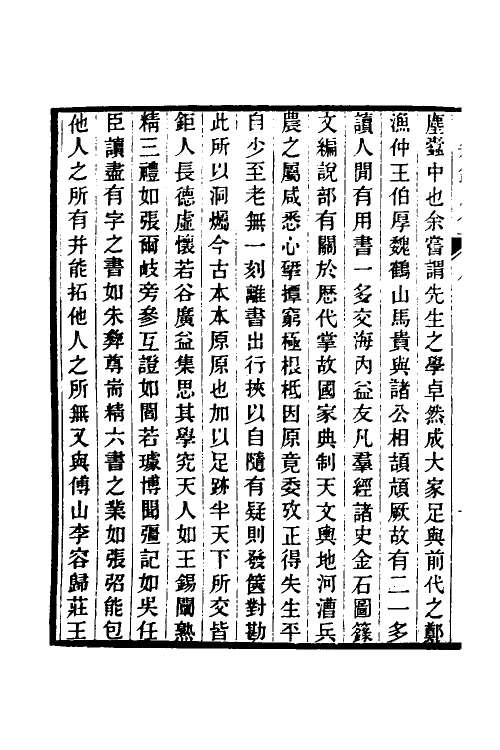 塵蠧中也余嘗謂先生之學卓然成大家足與前代之鄭
漁仲王伯厚魏鶴山馬貴與諸公相頡頏厥故有二一多
讀人間有用書一多交海內益友凡羣經諸史金石圖籙
文編說部有關於歷代掌故國家典制天文輿地河漕兵
農之屬咸悉心揅撢窮極根柢因原竟委攷正得失生平
自少至老無一刻離書出行挾以自隨有疑則發篋對勘
此所以洞爥今古本本原原也加以足跡半天下所交皆
鉅人長德虛懷若谷廣益集思其學究天人如王錫闡熟
精三禮如張爾岐旁參互證如閻若璩博聞彊記如吳任
臣讀盡有字之書如朱彝尊耑精六書之業如張弨能包
他人之所有并能拓他人之所無又與傅山李容歸莊王